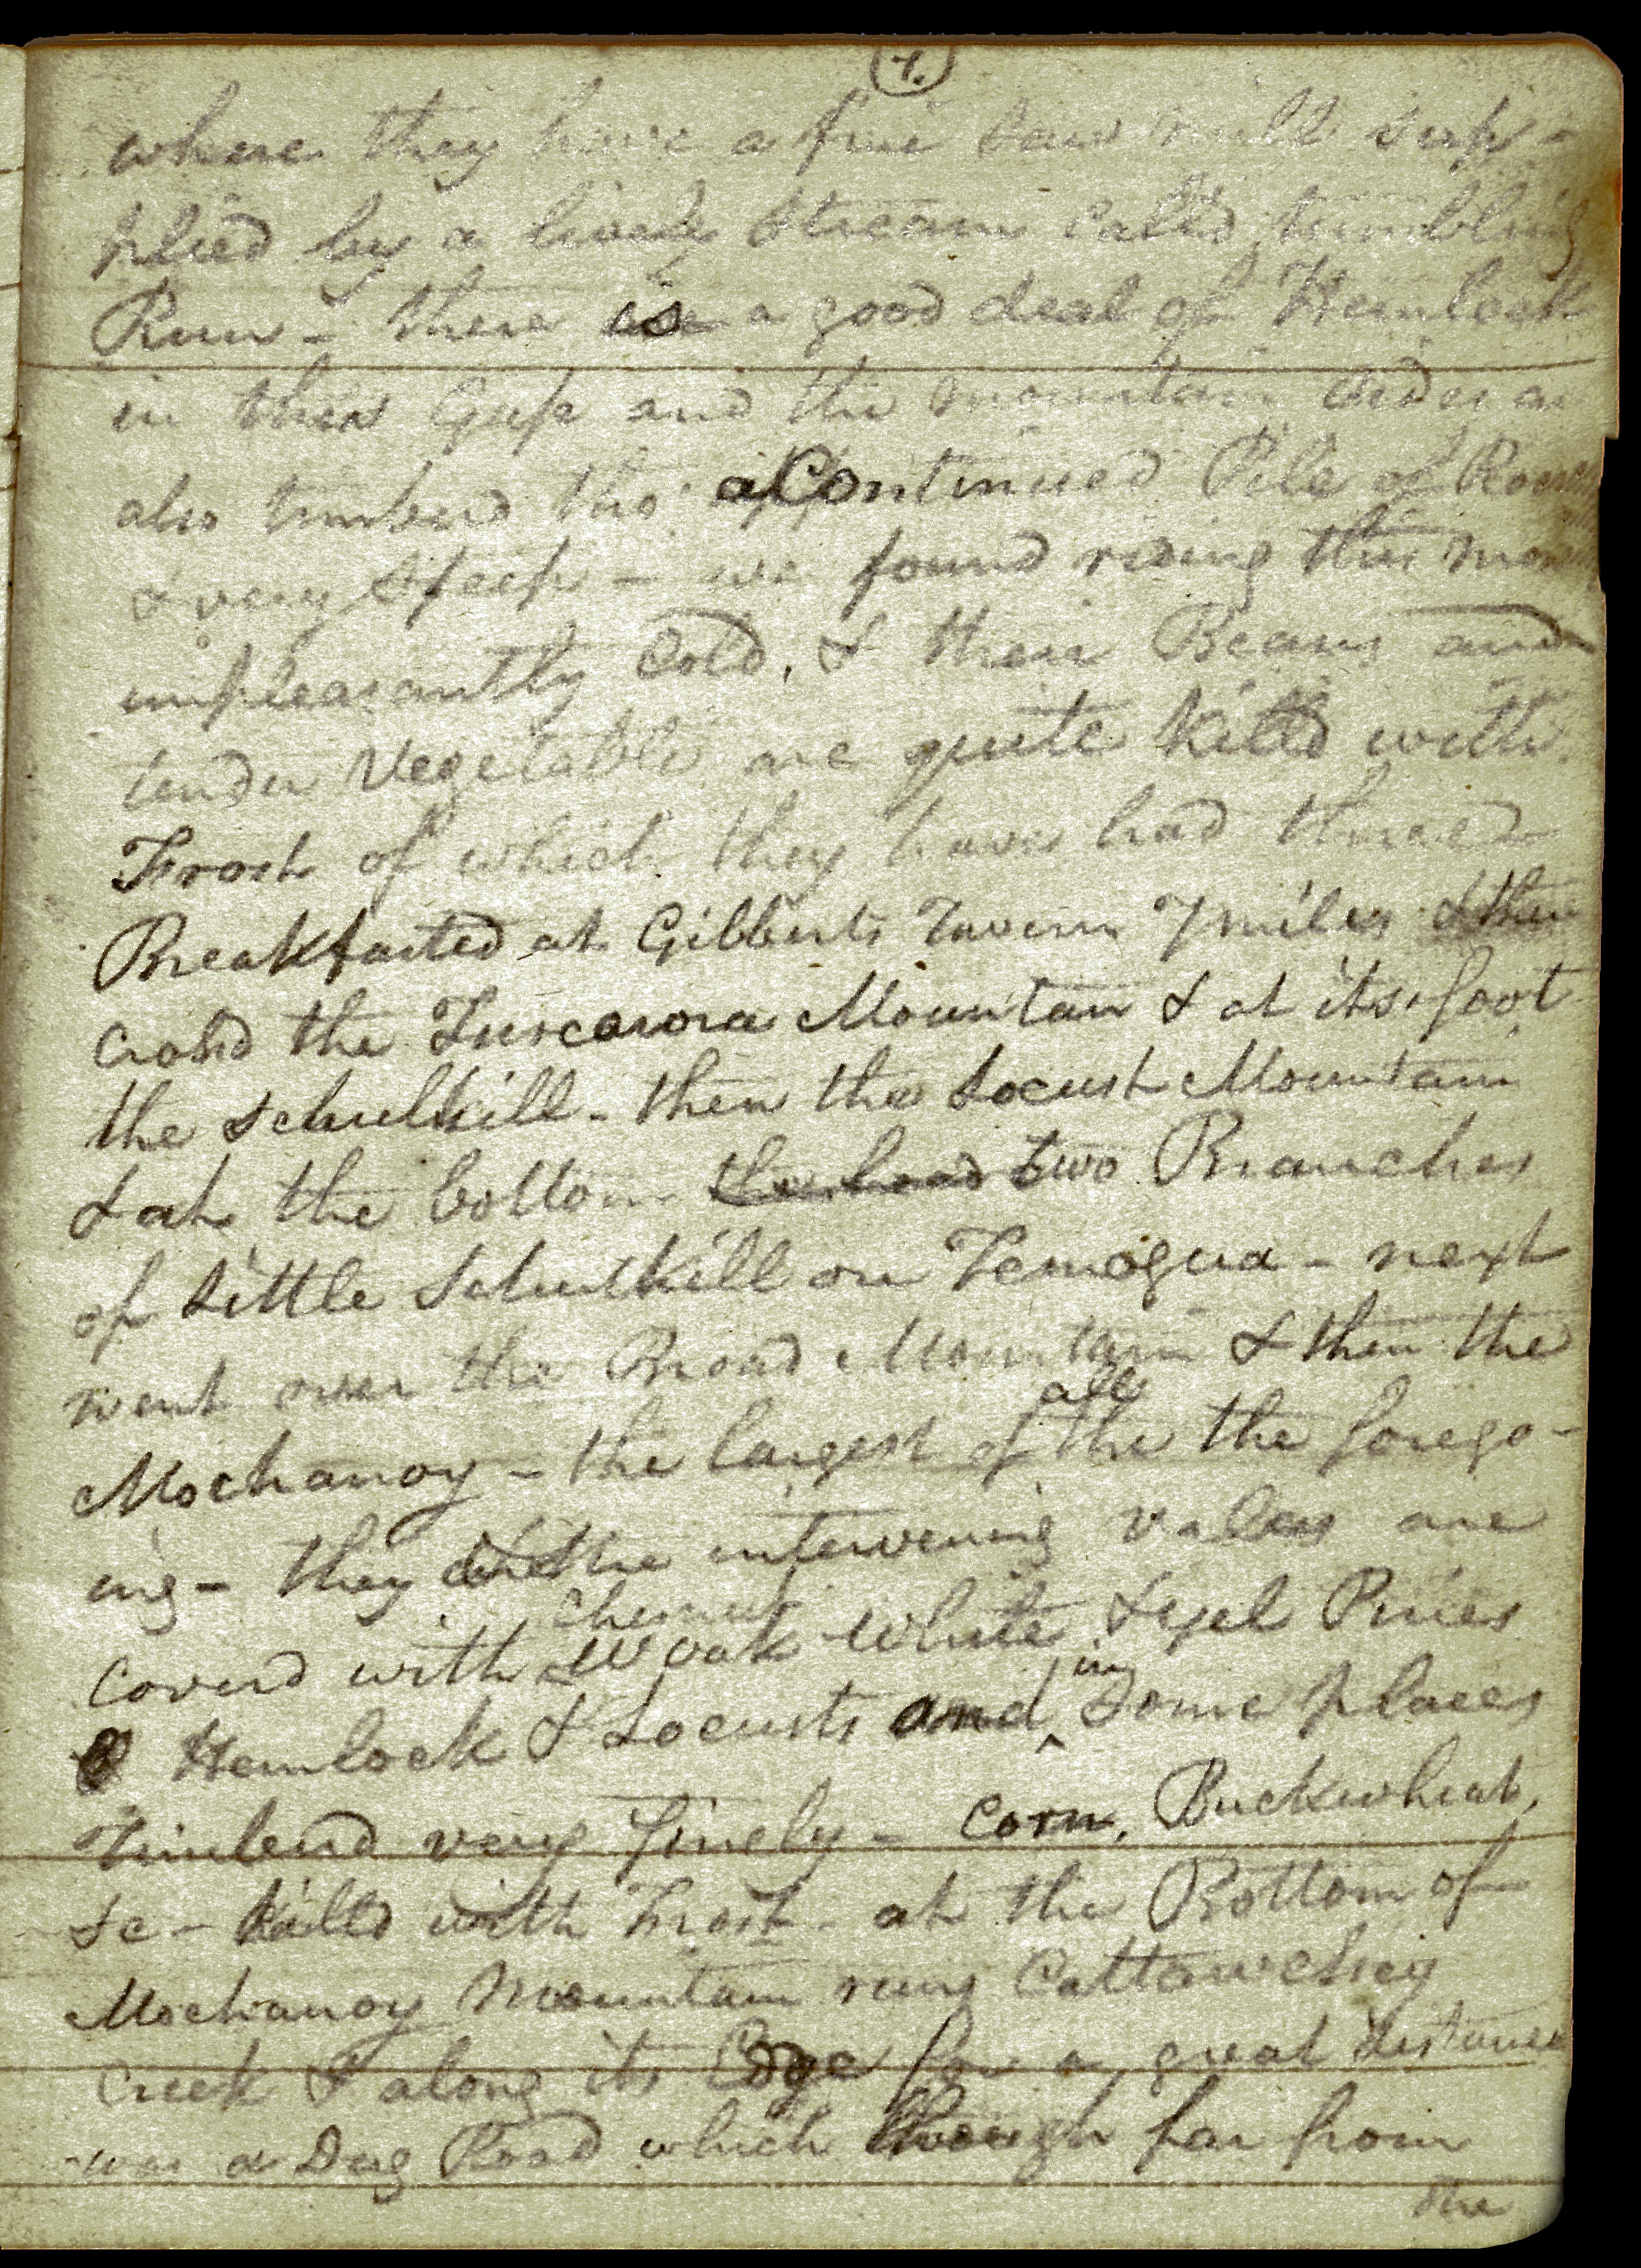 7.
where they have a fine Saw mill sup-
plied by a lively Stream call'd tumbling
Run - there is a good deal of Hemlock
in this Gap and the mountain sides are
also timberd tho' a Continued Pile of Rocks
& very Steep - we found riding this morn
unpleasantly Cold, & their Beans and
tender Vegetables are quite killd with
Frost of which they have had three
Breakfasted at Gibberts Tavern 7 miles & then
crossd the Tuscarora Mountain & at its foot
the Schulkill - then the Locust Mountain
& at the bottom the head two Branches
of Little Schulkill or Temogua - next
went over the Broad Mountain & then the
Mochanoy - the largest of the all the forego-
ing - they and the intervening Vales are
coverd with Chesnut W oak White & yel Pines
Hemlock & Locusts and in some places
Timberd very finely - Corn, Buckwheat,
&c - killd with Frost - at the Bottom of
Mochanoy Mountain runs Cattawchey
Creek & along its Edge for a great distance
was a Dug Road which though far from
the